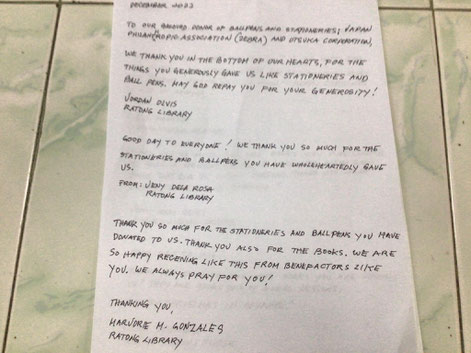 DECEMBER 2022
TO OUR BELOVED DONOR OF BALLPENS AND STATIONERIES; JAPAN
PHILANTHROPIC ASSOCIATION (DEBRA) AND OTSUKA CORPORATION,
WE THANK YOU IN THE BOTTOM OF OUR HEARTS, FOR THE
THINGS YOU GENEROUSLY GAVE US LIKE STATIONERIES AND
BALL PENS. MAY GOD REPAY YOU FOR YOUR GENEROSITY!
JORDAN OLVIS
RATONG LIBRARY
GOOD DAY TO EVERYONE! WE THANK YOU SO MUCH FOR THE
STATIONERIES AND BALLPENS YOU HAVE WHOLEHEARTEDLY GAVE
US.
FROM: JENY DELA ROSA
RATONG LIBRARY
THANK YOU SO MUCH FOR THE STATIONERIES AND BALLPENS YOU HAVE
DONATED TO US. THANK YOU ALSO FOR THE BOOKS. WE ARE
SO HAPPY RECEIVING LIKE THIS FROM BENEFACTORS LIKE
YOU. WE ALWAYS PRAY FOR YOU!
THANKING YOU,
MARJORIE M. GONZALES
RATONG LIBRARY